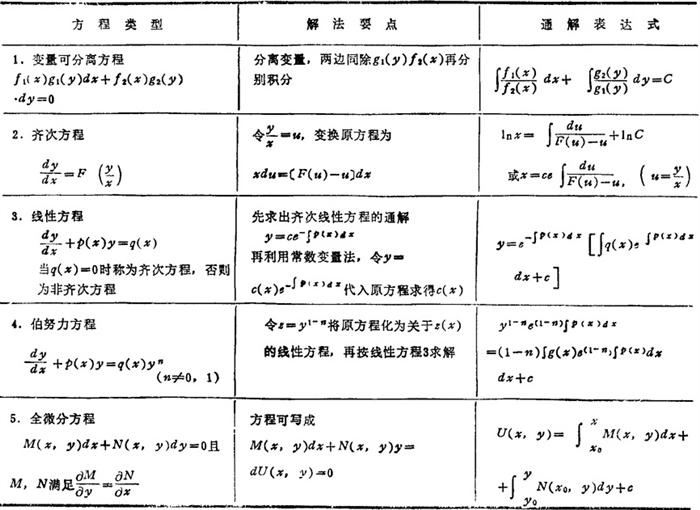 方程类型
解法要点
通解表达式
1. 变量可分离方程
f₁(x)g₁(y)dx+f₂(x)g₂(y)
·dy=0
分离变量，两边同除g₁(y)f₂(x)再分
别积分
∫f₁(x)/f₂(x) dx+ ∫g₂(y)/g₁(y) dy=C
2. 齐次方程
dy/dx=F (y/x)
令y/x=u，变换原方程为
xdu=[F(u)-u]dx
lnx= ∫du/F(u)-u+lnC
或x=ce ∫du/F(u)-u, (u=y/x)
3. 线性方程
dy/dx+p(x)y=q(x)
当q(x)=0时称为齐次方程，否则
为非齐次方程
先求出齐次线性方程的通解
y=ce^-∫p(x)dx
再利用常数变量法，令y=
c(x)e^-∫p(x)dx代入原方程求得c(x)
y=e^-∫p(x)dx [∫q(x)e ∫p(x)dx
dx+c]
4. 伯努力方程
dy/dx+p(x)y=q(x)yⁿ
(n≠0, 1)
令z=y^1-n将原方程化为关于z(x)
的线性方程，再按线性方程3求解
y^1-n e^(1-n)∫p(x)dx
=(1-n)∫g(x)e^(1-n)∫p(x)dx
dx+c
5. 全微分方程
M(x, y)dx+N(x, y)dy=0且
M, N满足∂M/∂y=∂N/∂x
方程可写成
M(x, y)dx+N(x, y)y=
dU(x, y)=0
U(x, y)= ∫ˣₓ₀ M(x, y)dx+
+∫ʸy₀ N(x₀, y)dy+c